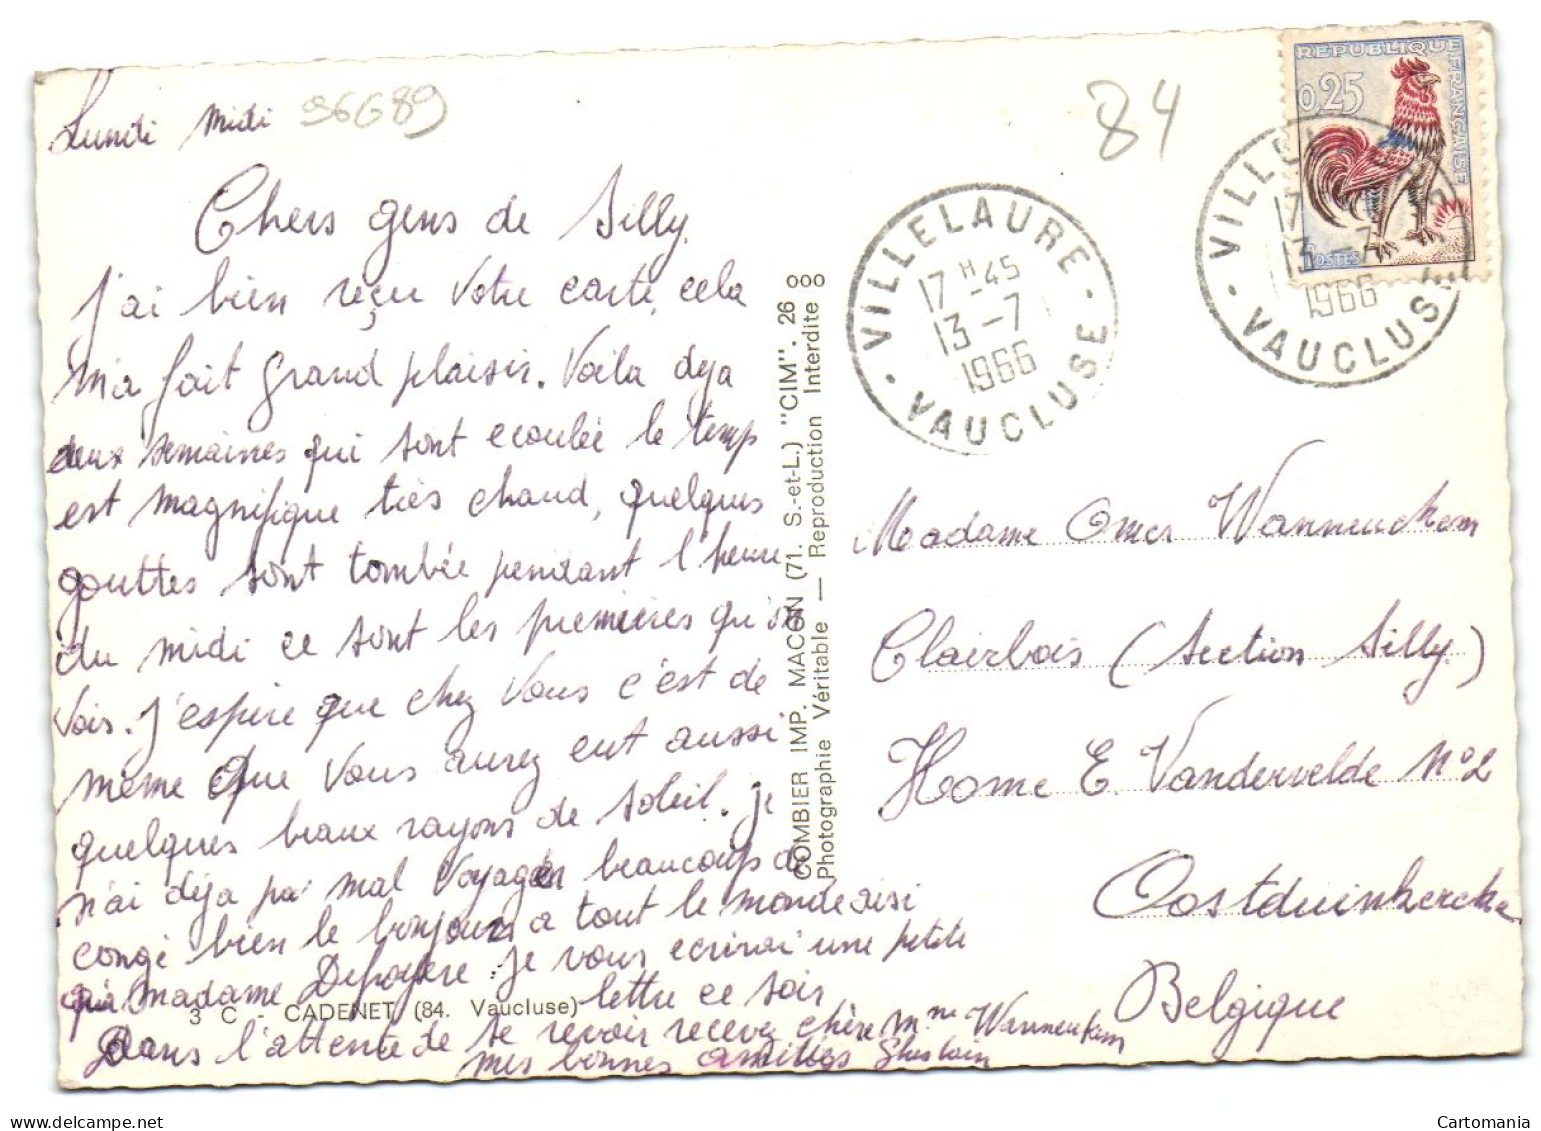 Lundi midi 96689
84
REPUBLIQUE FRANÇAISE
0,25
POSTES
VILLELAURE
17 H 45
13 -7
1966
VAUCLUSE
VILLELAURE
17
13 -7
1966
VAUCLUSE
Chers gens de Silly.
J'ai bien reçu votre carte, cela
m'a fait grand plaisir. Voila deja
deux semaines qui sont ecoulée le temp
est magnifique très chaud, quelques
gouttes sont tombée pendant l'heure
du midi ce sont les premières qu'on
vois. J'espère que chez vous c'est de
même que vous aurez eut aussi
quelques beaux rayons de soleil. Je
n'ai déja pas mal voyagér beaucoup de
congé bien le bonjour a tout le monde aisi
que madame Depoyere je vous ecrirai une petite
lettre ce soir
Dans l'attente de se revoir recevez chère Mme Wanneukem
mes bonnes amitiés Ghislain
3 C - CADENET (84. Vaucluse)
COMBIER IMP. MACON (71. S.-et-L.) "CIM". 26
Photographie Véritable — Reproduction Interdite
Madame Omer Wanneuckem
Clairbois (Section Silly.)
Home E. Vandervelde N°2
Oostduinkercke
Belgique
Cartomania